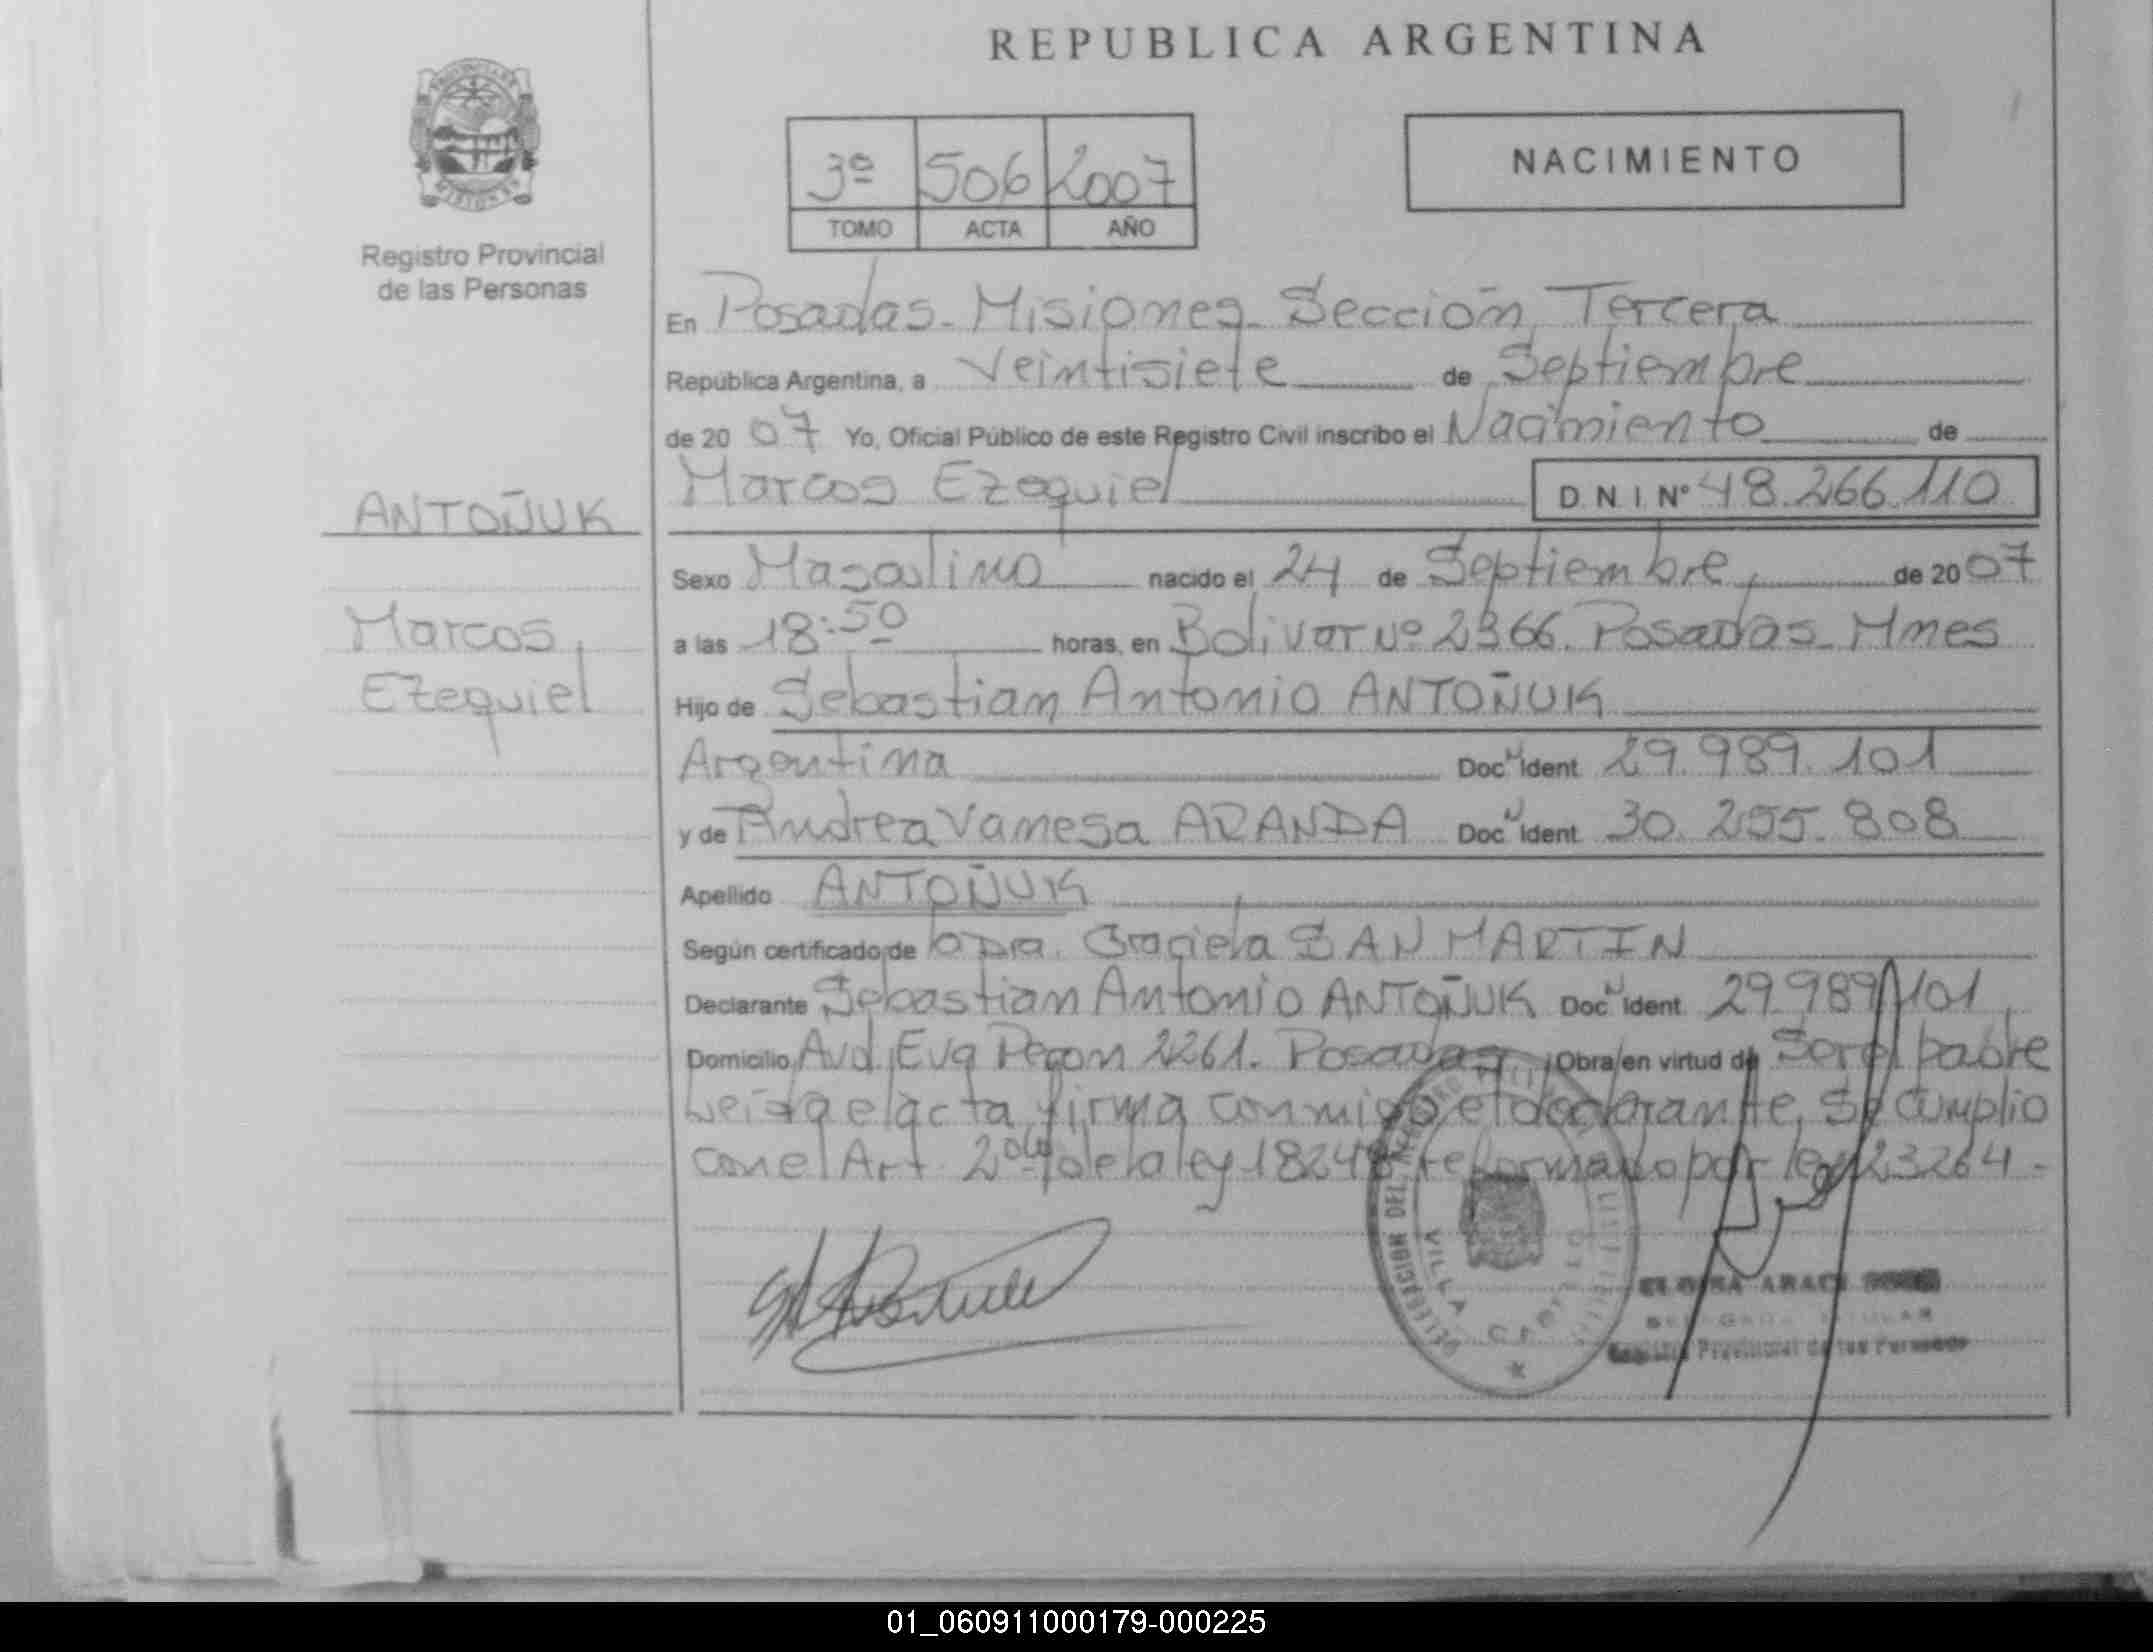 REPUBLICA ARGENTINA
Registro Provincial
de las Personas
3º 506 2007
TOMO ACTA AÑO
NACIMIENTO
En Posadas - Misiones - Sección Tercera
República Argentina, a Veintisiete de Septiembre
de 20 07 Yo, Oficial Público de este Registro Civil inscribo el Nacimiento de
Marcos Ezequiel D.N.I. Nº 48.266.110
ANTOÑUK
Marcos
Ezequiel
Sexo Masculino nacido el 24 de Septiembre, de 20 07
a las 18:50 horas, en Bolivar Nº 2366. Posadas - Mnes
Hijo de Sebastian Antonio ANTOÑUK
Argentina Doc. Ident. 29.989.101
y de Andrea Vanesa ARANDA Doc. Ident. 30.255.808
Apellido ANTOÑUK
Según certificado de la Dra. Graciela SAN MARTIN
Declarante Sebastian Antonio ANTOÑUK Doc. Ident. 29.989.101
Domicilio Avd. Eva Peron 2261. Posadas Obra en virtud de Ser el padre
Leida el acta, firma conmigo el declarante, Se cumplio
con el Art. 2do de la ley 18248 reformado por ley 23264 -
DELEGACION DEL REGISTRO
VILLA
Registro Provincial de las Personas
01_060911000179-000225